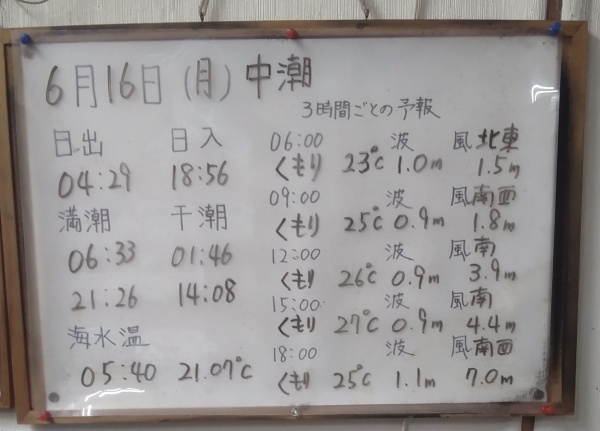 6月16日(月)中潮
3時間ごとの予報
日出 日入
04:29 18:56
満潮 干潮
06:33 01:46
21:26 14:08
海水温
05:40 21.07°C
06:00 波 風北東
くもり 23°C 1.0m 1.5m
09:00 波 風南西
くもり 25°C 0.9m 1.8m
12:00 波 風南
くもり 26°C 0.9m 3.9m
15:00 波 風南
くもり 27°C 0.9m 4.4m
18:00 波 風南西
くもり 25°C 1.1m 7.0m